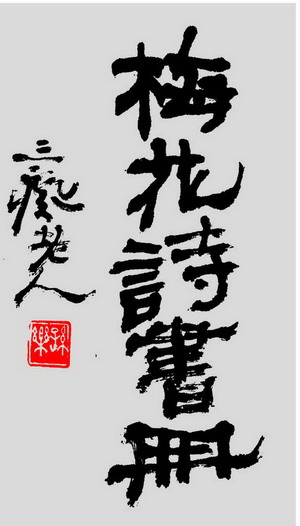 梅花詩書冊
三癡老人